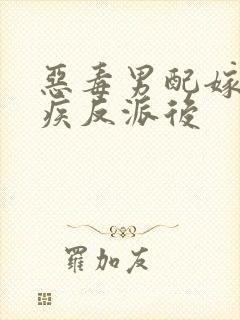 惡毒男配嫁
疾反派後
羅加友